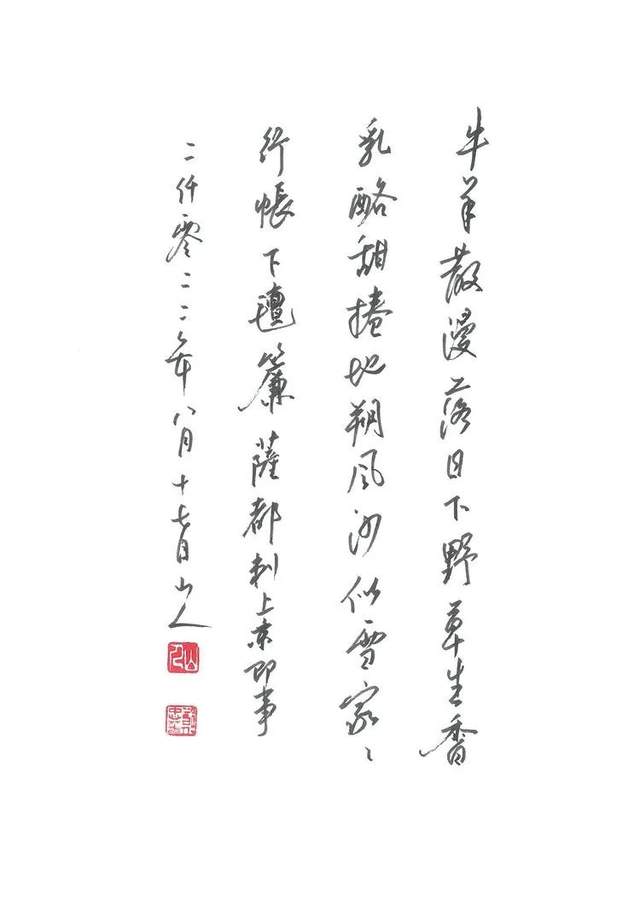 牛羊散漫落日下野草生香
乳酪甜捲地朔风沙似雪家々
行帳下氈簾薩都剌上京即事
二仟零二二年八月十七日山人
山人